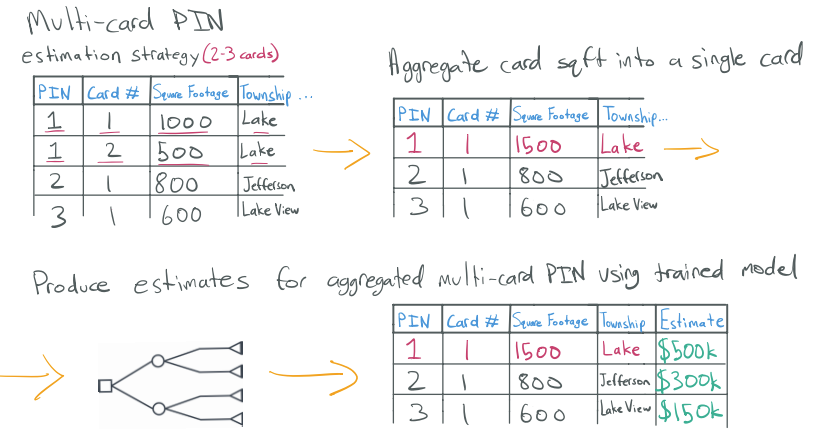 Multi-card PIN
estimation strategy (2-3 cards)
PIN Card # Square Footage Township ...
1 1 1000 Lake
1 2 500 Lake
2 1 800 Jefferson
3 1 600 Lake View
Aggregate card sqft into a single card
PIN Card # Square Footage Township...
1 1 1500 Lake
2 1 800 Jefferson
3 1 600 Lake View
Produce estimates for aggregated multi-card PIN using trained model
PIN Card # Square Footage Township Estimate
1 1 1500 Lake $500k
2 1 800 Jefferson $300k
3 1 600 Lake View $150k